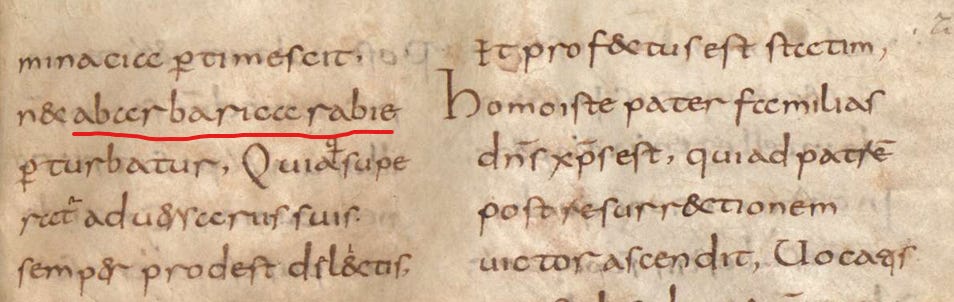 minacia ꝑtimescit,
n& abarbarica rabie
ꝑturbatur, Quia supe
rat᷑ aduersarius suis.
semper prodest dil&tis.
Et prof&tus est statim,
Homo iste pater familias
dn̄s xp̄s est, qui ad patrē
post resurr&tionem
uictor ascendit, Uocans